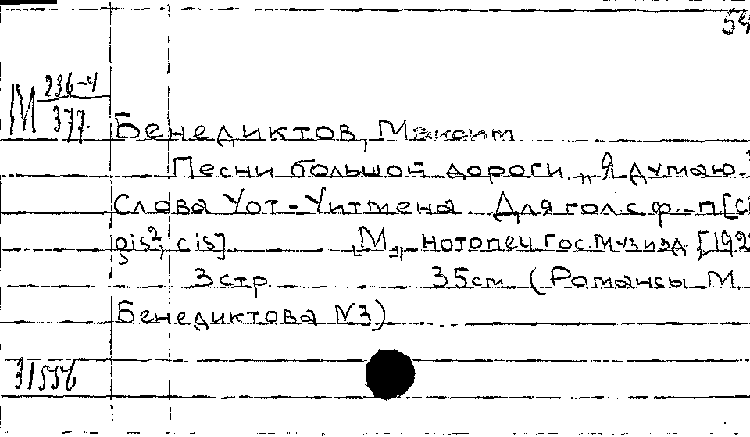 54
М 236-4
377
Бенедиктов, Максим
Песни большой дороги „Я думаю.
Слова Уот-Уитмена Для гол с ф-п [ci
gis², cis] „М„ нотопеч Гос. Музизд [192
3 стр 35 см (Романсы М
Бенедиктова N3)
31556